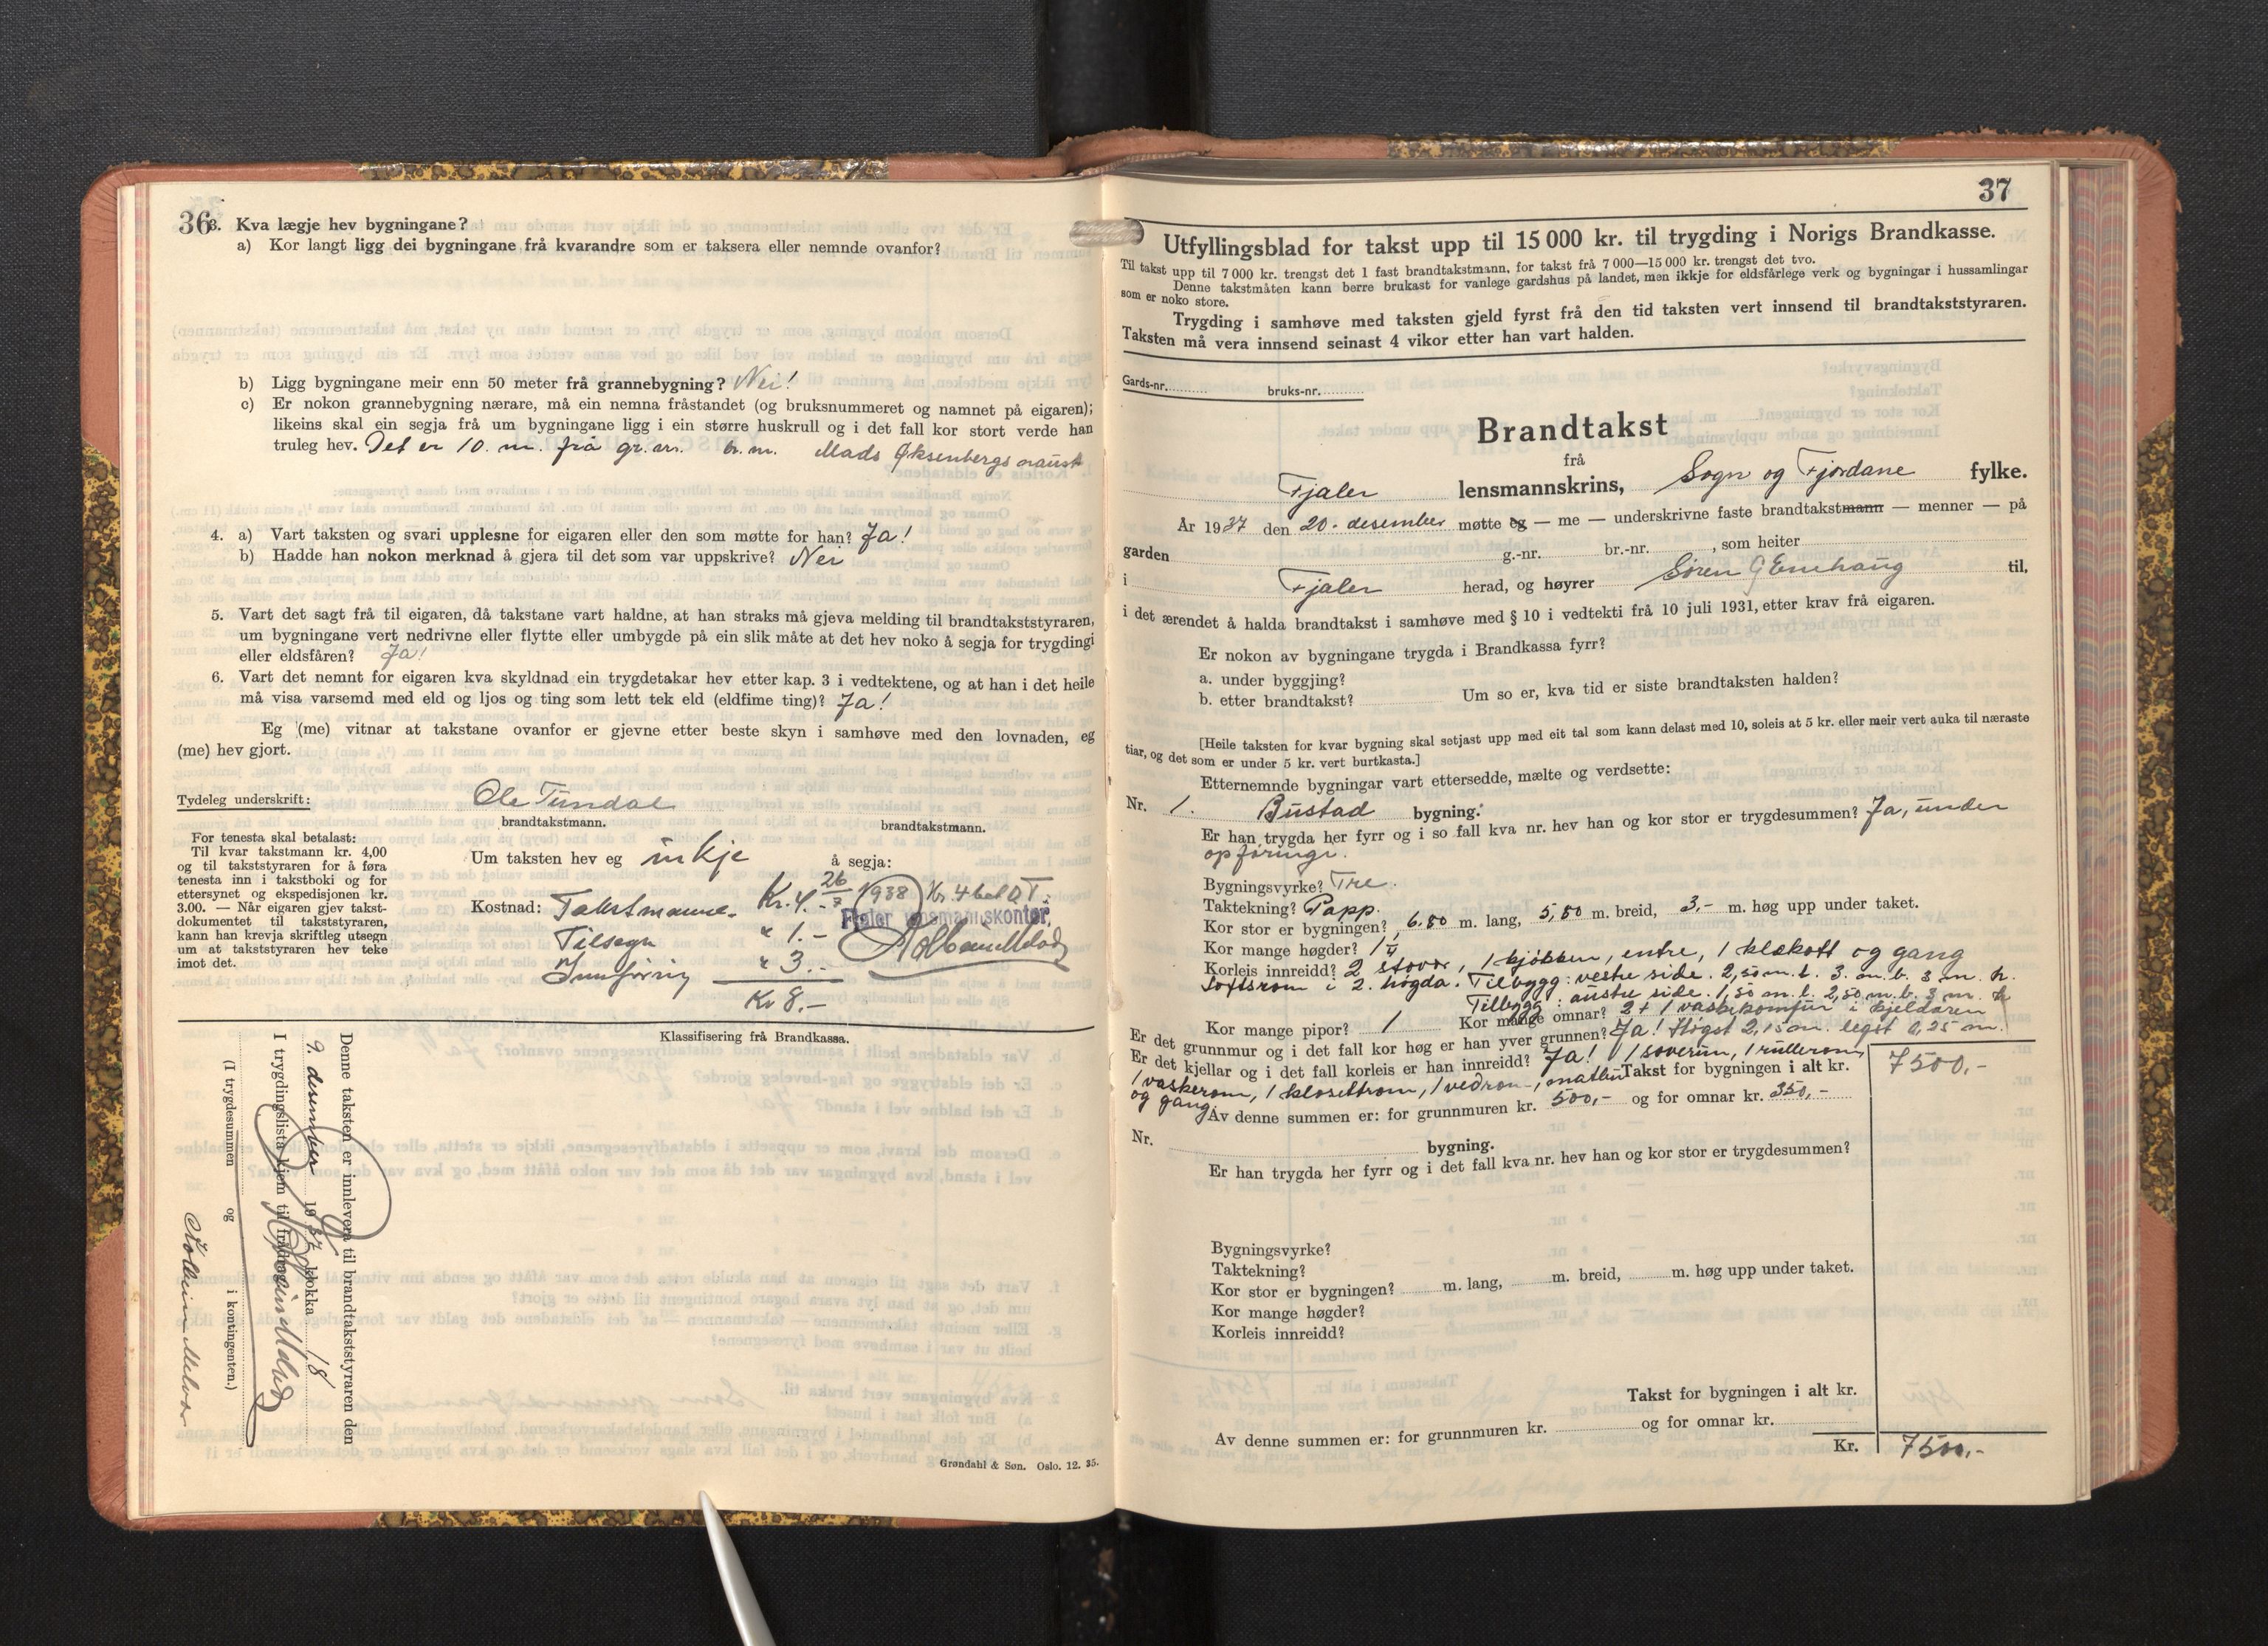 36
3. Kva lægje hev bygningane?
a) Kor langt ligg dei bygningane frå kvarandre som er taksera eller nemnde ovanfor?
b) Ligg bygningane meir enn 50 meter frå grannebygning? Nei!
c) Er nokon grannebygning nærare, må ein nemna fråstandet (og bruksnummeret og namnet på eigaren);
likeins skal ein segja frå um bygningane ligg i ein større huskrull og i det fall kor stort verde han
truleg hev. Det er 10. m. frå gr. nr. br. nr. Mads Øksenbergs naust
4. a) Vart taksten og svari upplesne for eigaren eller den som møtte for han? Ja!
b) Hadde han nokon merknad å gjera til det som var uppskrive? Nei
5. Vart det sagt frå til eigaren, då takstane vart haldne, at han straks må gjeva melding til brandtakststyraren,
um bygningane vert nedrivne eller flytte eller umbygde på ein slik måte at det hev noko å segja for trygdingi
eller eldsfåren? Ja!
6. Vart det nemnt for eigaren kva skyldnad ein trygdetakar hev etter kap. 3 i vedtektene, og at han i det heile
må visa varsemd med eld og ljos og ting som lett tek eld (eldfime ting)? Ja!
Eg (me) vitnar at takstane ovanfor er gjevne etter beste skyn i samhøve med den lovnaden, eg
(me) hev gjort.
Tydeleg underskrift: Ole Tundal
brandtakstmann. brandtakstmann.
For tenesta skal betalast:
Til kvar takstmann kr. 4,00
og til takststyraren for å føra
tenesta inn i takstboki og for
ettersynet og ekspedisjonen kr.
3.00. — Når eigaren gjev takst-
dokumentet til takststyraren,
kann han krevja skriftleg utsegn
um at takststyraren hev teke
imot det.
Um taksten hev eg inkje å segja:
Kostnad: Takstmann Kr. 4.- 26/7 1938 Kr. 4 bet O T.
Fjaler lensmannskontor
Tilsegn " 1.-
Innføring " 3.-
Kr 8.-
Klassifisering frå Brandkassa.
Denne taksten er innlevera til brandtakststyraren den
9. desember 1937 klokka 18
I trygdingslista kjem til
(I trygdesummen og i kontingenten.)
37
Utfyllingsblad for takst upp til 15 000 kr. til trygding i Norigs Brandkasse.
Til takst upp til 7 000 kr. trengst det 1 fast brandtakstmann, for takst frå 7 000—15 000 kr. trengst det tvo.
Denne takstmåten kann berre brukast for vanlege gardshus på landet, men ikkje for eldsfårlege verk og bygningar i hussamlingar
som er noko store.
Trygding i samhøve med taksten gjeld fyrst frå den tid taksten vert innsend til brandtakststyraren.
Taksten må vera innsend seinast 4 vikor etter han vart halden.
Gards-nr. bruks-nr.
Brandtakst
frå
Fjaler lensmannskrins, Sogn og Fjordane fylke.
År 1937 den 20. desember møtte eg — me — underskrivne faste brandtakstmann — menner — på
garden g.-nr. br.-nr. , som heiter
i Fjaler herad, og høyrer Søren G Enehaug til,
i det ærendet å halda brandtakst i samhøve med § 10 i vedtekti frå 10 juli 1931, etter krav frå eigaren.
Er nokon av bygningane trygda i Brandkassa fyrr?
a. under byggjing?
b. etter brandtakst? Um so er, kva tid er siste brandtaksten halden?
[Heile taksten for kvar bygning skal setjast upp med eit tal som kann delast med 10, soleis at 5 kr. eller meir vert auka til næraste
tiar, og det som er under 5 kr. vert burtkasta.]
Etternemnde bygningar vart ettersedde, mælte og verdsette:
Nr. 1. Bustad bygning.
Er han trygda her fyrr og i so fall kva nr. hev han og kor stor er trygdesummen? Ja, under
opføringi.
Bygningsvyrke? Tre.
Taktekning? Papp.
Kor stor er bygningen? 6.80 m. lang, 5,80 m. breid, 3,- m. høg upp under taket.
Kor mange høgder? 1 ½
Korleis innreidd? 2 stovor, 1 kjøkken, entre, 1 klekott og gang
loftsrom i 2. høgda. Tilbygg: vestre side. 2,50 m. l. 3. m. b. 3 m. h.
Tilbygg: austre side. 1,50 m. l. 2,50 m. b. 3 m. h
Kor mange pipor? 1 Kor mange omnar? 2 + 1 vaskekomfur i kjeldaren
Er det grunnmur og i det fall kor høg er han yver grunnen? Ja! Høgst 2,15 m. legst 0,25 m.
Er det kjellar og i det fall korleis er han innreidd? Ja! 1 soverum, 1 rullerom,
1 vaskerom, 1 klosettrom, 1 vedrom, matbu Takst for bygningen i alt kr. 7500,-
og gang.
Av denne summen er: for grunnmuren kr. 500,- og for omnar kr. 350,-
Nr. bygning.
Er han trygda her fyrr og i det fall kva nr. hev han og kor stor er trygdesummen?
Bygningsvyrke?
Taktekning?
Kor stor er bygningen? m. lang, m. breid, m. høg upp under taket.
Kor mange høgder?
Korleis innreidd?
Takst for bygningen i alt kr.
Av denne summen er: for grunnmuren kr. og for omnar kr.
Kr. 7500,-
Grøndahl & Søn. Oslo. 12. 35.